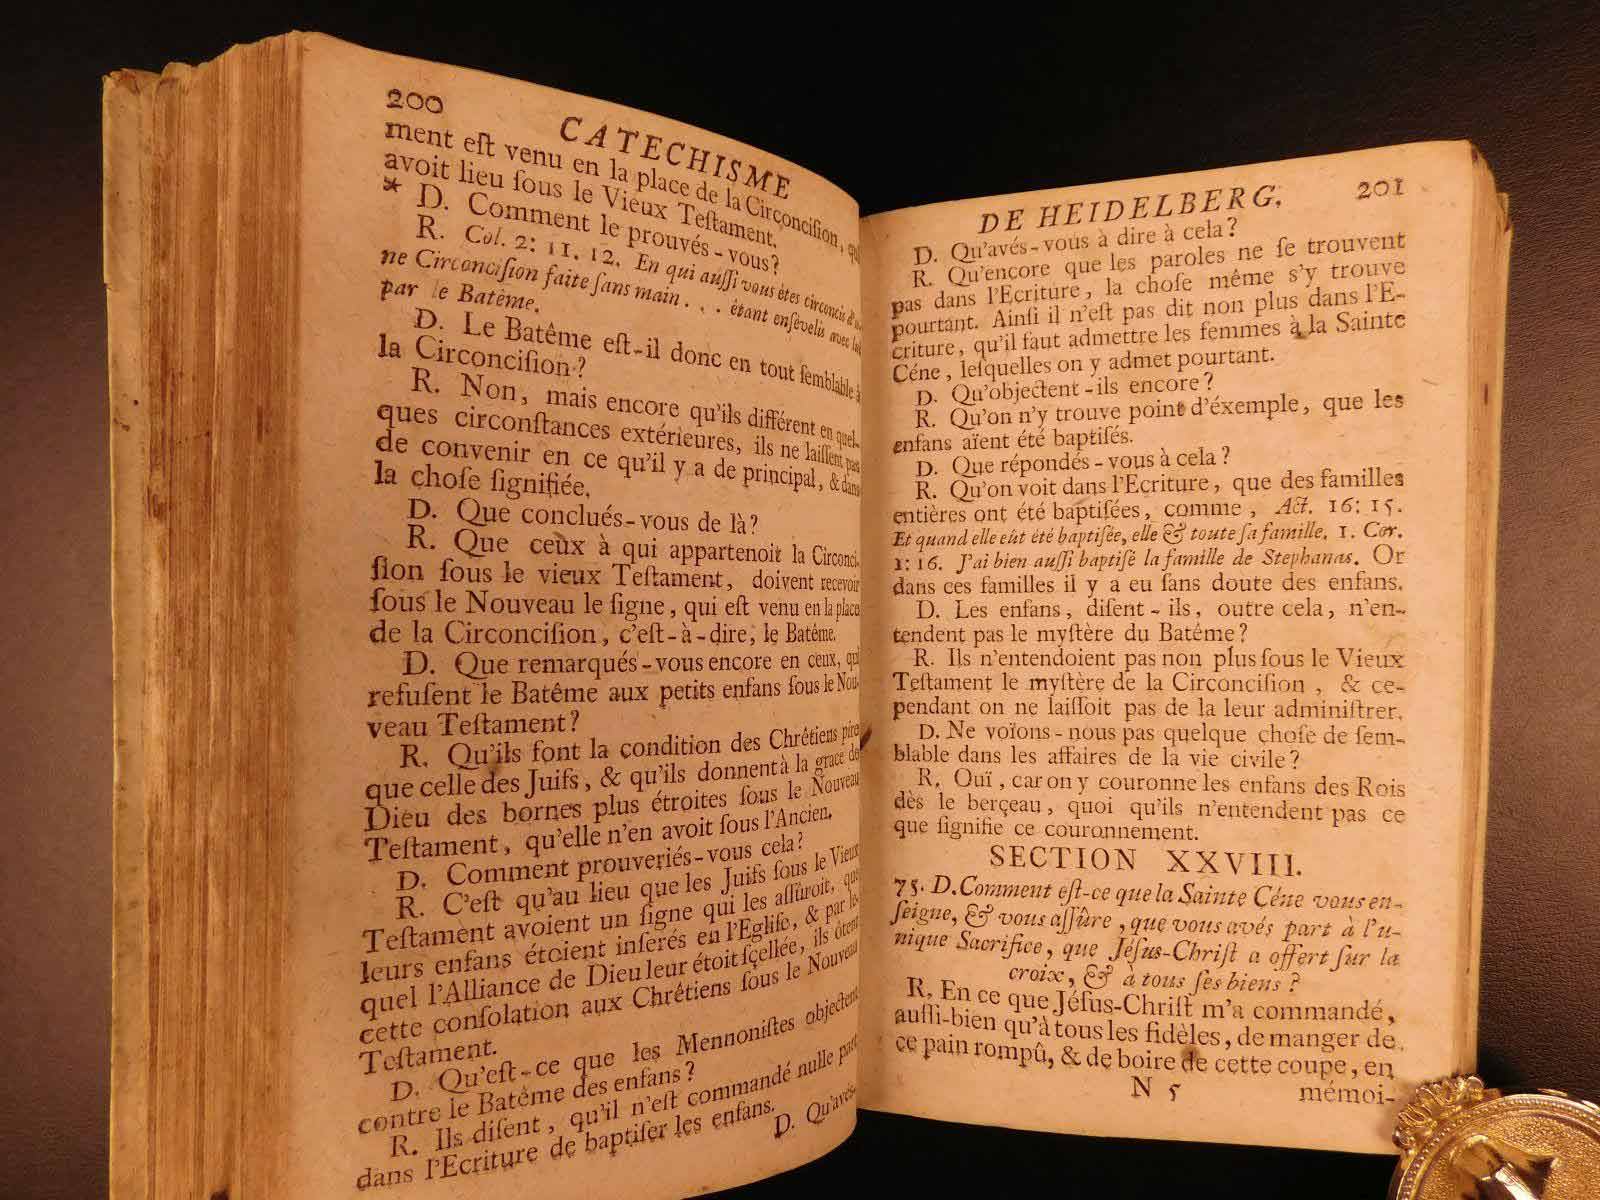 200
CATECHISME
ment eſt venu en la place de la Circonciſion, qui
avoit lieu ſous le Vieux Teſtament.
* D. Comment le prouvés-vous?
R. Col. 2: 11. 12. En qui auſſi vous êtes circoncis d'u-
ne Circonciſion faite ſans main... étant enſévelis avec lui
par le Batême.
D. Le Batême eſt-il donc en tout ſemblable à
la Circonciſion?
R. Non, mais encore qu'ils différent en quel-
ques circonſtances extérieures, ils ne laiſſent pas
de convenir en ce qu'il y a de principal, & dans
la choſe ſignifiée.
D. Que conclués-vous de là?
R. Que ceux à qui appartenoit la Circonci-
ſion ſous le vieux Teſtament, doivent recevoir
ſous le Nouveau le ſigne, qui eſt venu en la place
de la Circonciſion, c'eſt-à-dire, le Batême.
D. Que remarqués-vous encore en ceux, qui
refuſent le Batême aux petits enfans ſous le Nou-
veau Teſtament?
R. Qu'ils font la condition des Chrêtiens pire
que celle des Juifs, & qu'ils donnent à la grace de
Dieu des bornes plus étroites ſous le Nouveau
Teſtament, qu'elle n'en avoit ſous l'Ancien.
D. Comment prouveriés-vous cela?
R. C'eſt qu'au lieu que les Juifs ſous le Vieux
Teſtament avoient un ſigne qui les aſſûroit, que
leurs enfans étoient inſerés en l'Egliſe, & par le-
quel l'Alliance de Dieu leur étoit ſçellée, ils ôtent
cette conſolation aux Chrêtiens ſous le Nouveau
Teſtament.
D. Qu'eſt-ce que les Mennoniſtes objectent
contre le Batême des enfans?
R. Ils diſent, qu'il n'eſt commandé nulle part
dans l'Ecriture de baptiſer les enfans.
D. Qu'avés-
DE HEIDELBERG. 201
D. Qu'avés-vous à dire à cela?
R. Qu'encore que les paroles ne ſe trouvent
pas dans l'Ecriture, la choſe même s'y trouve
pourtant. Ainſi il n'eſt pas dit non plus dans l'E-
criture, qu'il faut admettre les femmes à la Sainte
Céne, leſquelles on y admet pourtant.
D. Qu'objectent-ils encore?
R. Qu'on n'y trouve point d'éxemple, que les
enfans aïent été baptiſés.
D. Que répondés-vous à cela?
R. Qu'on voit dans l'Ecriture, que des familles
entières ont été baptiſées, comme, Act. 16: 15.
Et quand elle eût été baptiſée, elle & toute ſa famille. 1. Cor.
1: 16. J'ai bien auſſi baptiſé la famille de Stephanas. Or
dans ces familles il y a eu ſans doute des enfans.
D. Les enfans, diſent-ils, outre cela, n'en-
tendent pas le myſtère du Batême?
R. Ils n'entendoient pas non plus ſous le Vieux
Teſtament le myſtère de la Circonciſion, & ce-
pendant on ne laiſſoit pas de la leur adminiſtrer.
D. Ne voïons-nous pas quelque choſe de ſem-
blable dans les affaires de la vie civile?
R. Ouï, car on y couronne les enfans des Rois
dès le berçeau, quoi qu'ils n'entendent pas ce
que ſignifie ce couronnement.
SECTION XXVIII.
75. D. Comment eſt-ce que la Sainte Céne vous en-
ſeigne, & vous aſſûre, que vous avés part à l'u-
nique Sacrifice, que Jéſus-Chriſt a offert ſur la
croix, & à tous ſes biens?
R. En ce que Jéſus-Chriſt m'a commandé,
auſſi-bien qu'à tous les fidèles, de manger de
ce pain rompû, & de boire de cette coupe, en
N 5 mémoi-